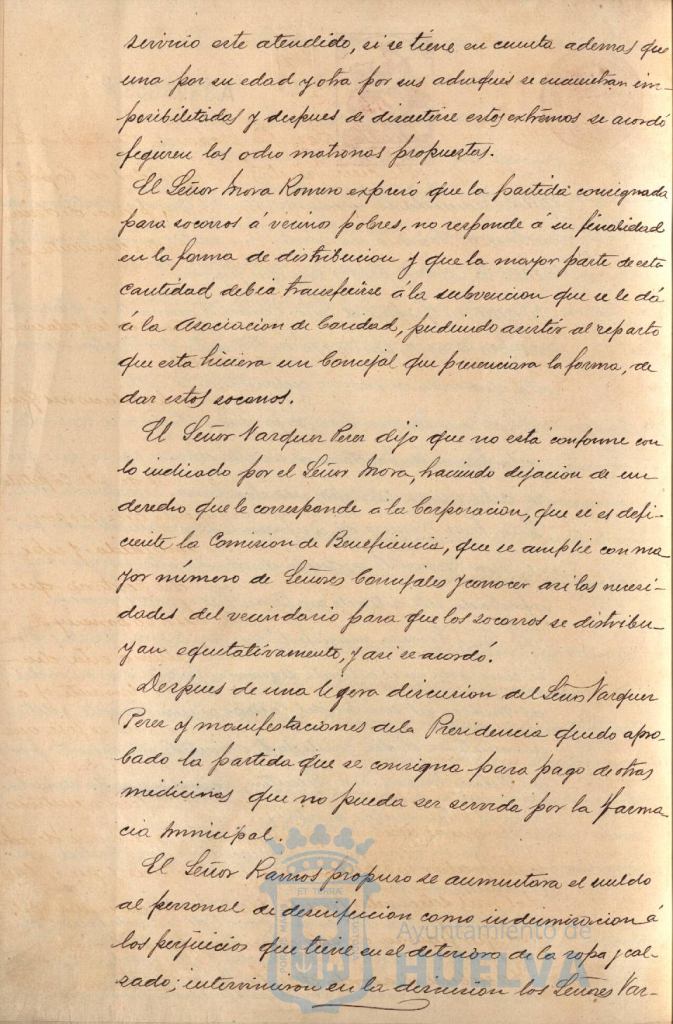 servicio este atendido, si se tiene en cuenta ademas que
una por su edad y otra por sus achaques se encuentran im-
posibilitadas y despues de discutirse estos extremos se acordó
figuren las ocho matronas propuestas.
El Señor Mora Romero expresó que la partida consignada
para socorros á vecinos pobres, no responde á su finalidad
en la forma de distribucion y que la mayor parte de esta
cantidad debia transferirse á la subvencion que se le dá
á la Asociacion de Caridad, pudiendo asistir al reparto
que esta hiciera un Concejal que presenciara la forma, de
dar estos socorros.
El Señor Vazquez Perez dijo que no está conforme con
lo indicado por el Señor Mora, haciendo dejacion de un
derecho que le corresponde á la Corporacion, que si es defi-
ciente la Comision de Beneficencia, que se amplie con ma
yor número de Señores Concejales y conocer asi las necesi-
dades del vecindario para que los socorros se distribu-
yan equitativamente, y asi se acordó.
Despues de una ligera discusion del Señor Vazquez
Perez y manifestaciones de la Presidencia quedo apro-
bado la partida que se consigna para pago de otras
medicinas que no pueda ser servida por la Farma
cia Municipal.
El Señor Ramos propuso se aumentara el sueldo
al personal de desinfeccion como indemnizacion á
los perjuicios que tiene en el deterioro de la ropa y cal-
zado; intervinieron en la discusion los Señores Vaz-
Ayuntamiento de
HUELVA